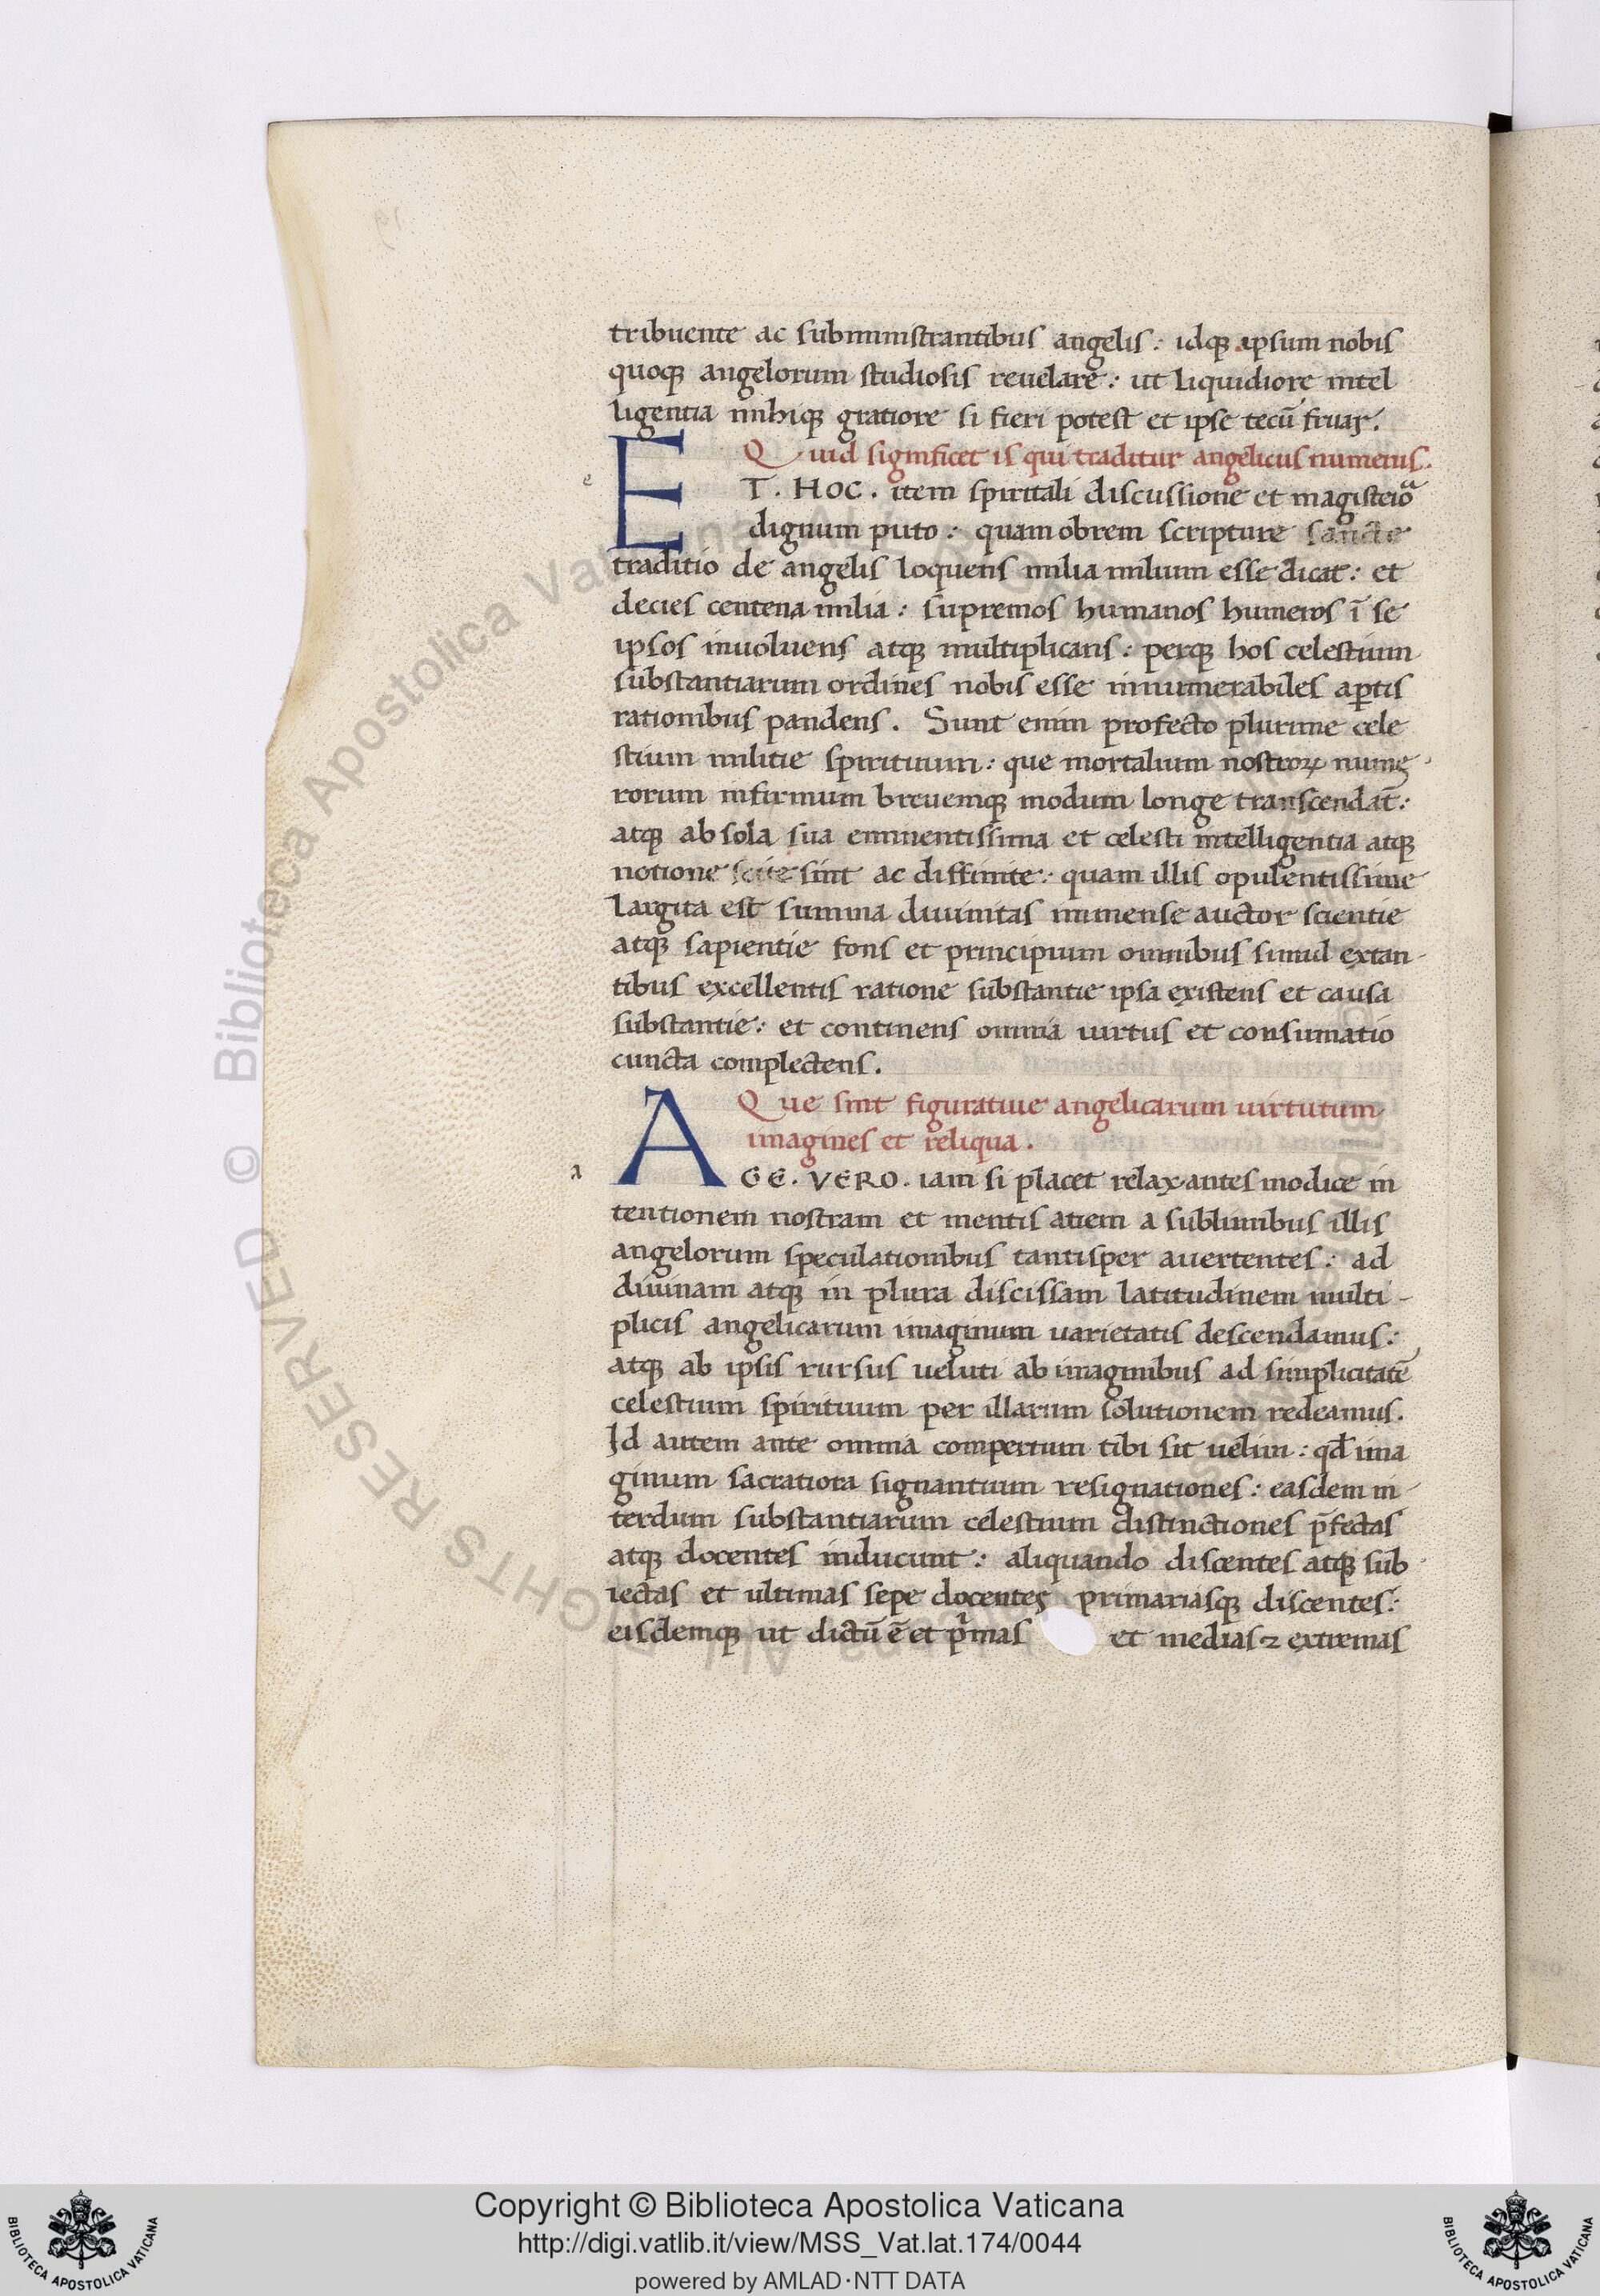 tribuente ac subministrantibus angelis: idq; ipsum nobis
quoq; angelorum studiosis reuelare: ut liquidiore intel
ligentia mihiq; gratiore si fieri potest et ipse tecū fruar.
Quid significet is qui traditur angelicus numerus.
e
ET. HOC. item spiritali discussione et
dignum puto: quamobrem scripture sancte
traditio de angelis loquens milia milium esse dicat: et
decies centena milia: supremos humanos numeros ī se
ipsos inuoluens atq; multiplicans: perq; hos celestium
substantiarum ordines nobis esse innumerabiles aꝑtis
rationibus pandens. Sunt enim profecto plurime cele
stium militie spirituum: que mortalium nostroꝝ nume
rorum infirmum breuemq; modum longe transcendāt:
atq; ab sola sua eminentissima et celesti intelligentia atq;
notione scite sint ac diffinite: quam illis opulentissime
largita est summa diuinitas immense auctor scientie
atq; sapientie fons et principium omnibus simul extan-
tibus excellentis ratione substantie ipsa existens et causa
substantie: et continens omnia uirtus et consumatio
cuncta complectens.
Que sint figuratiue angelicarum uirtutum
imagines et reliqua.
a
AGE. VERO. iam si placet relaxantes modice in
tentionem nostram et mentis aciem a sublimibus illis
angelorum speculationibus tantisper auertentes: ad
diuinam atq; in plura discissam latitudinem multi-
plicis angelicarum imaginum uarietatis descendamus:
atq; ab ipsis rursus ueluti ab imaginibus ad simplicitatē
celestium spirituum per illarum solutionem redeamus.
Id autem ante omnia compertum tibi sit uelim: qđ ima
ginum sacratiora signantium resignationes: easdem in-
terdum substantiarum celestium distinctiones p̄fectas
atq; docentes inducunt: aliquando discentes atq; sub
iectas et ultimas sepe docentes primariasq; discentes:
eisdemq; ut dictū ē et pͥmas et medias ⁊ extremas
© Biblioteca Apostolica Vaticana ALL RIGHTS RESERVED
Copyright © Biblioteca Apostolica Vaticana
http://digi.vatlib.it/view/MSS_Vat.lat.174/0044
powered by AMLAD·NTT DATA
BIBLIOTECA APOSTOLICA VATICANA
BIBLIOTECA APOSTOLICA VATICANA